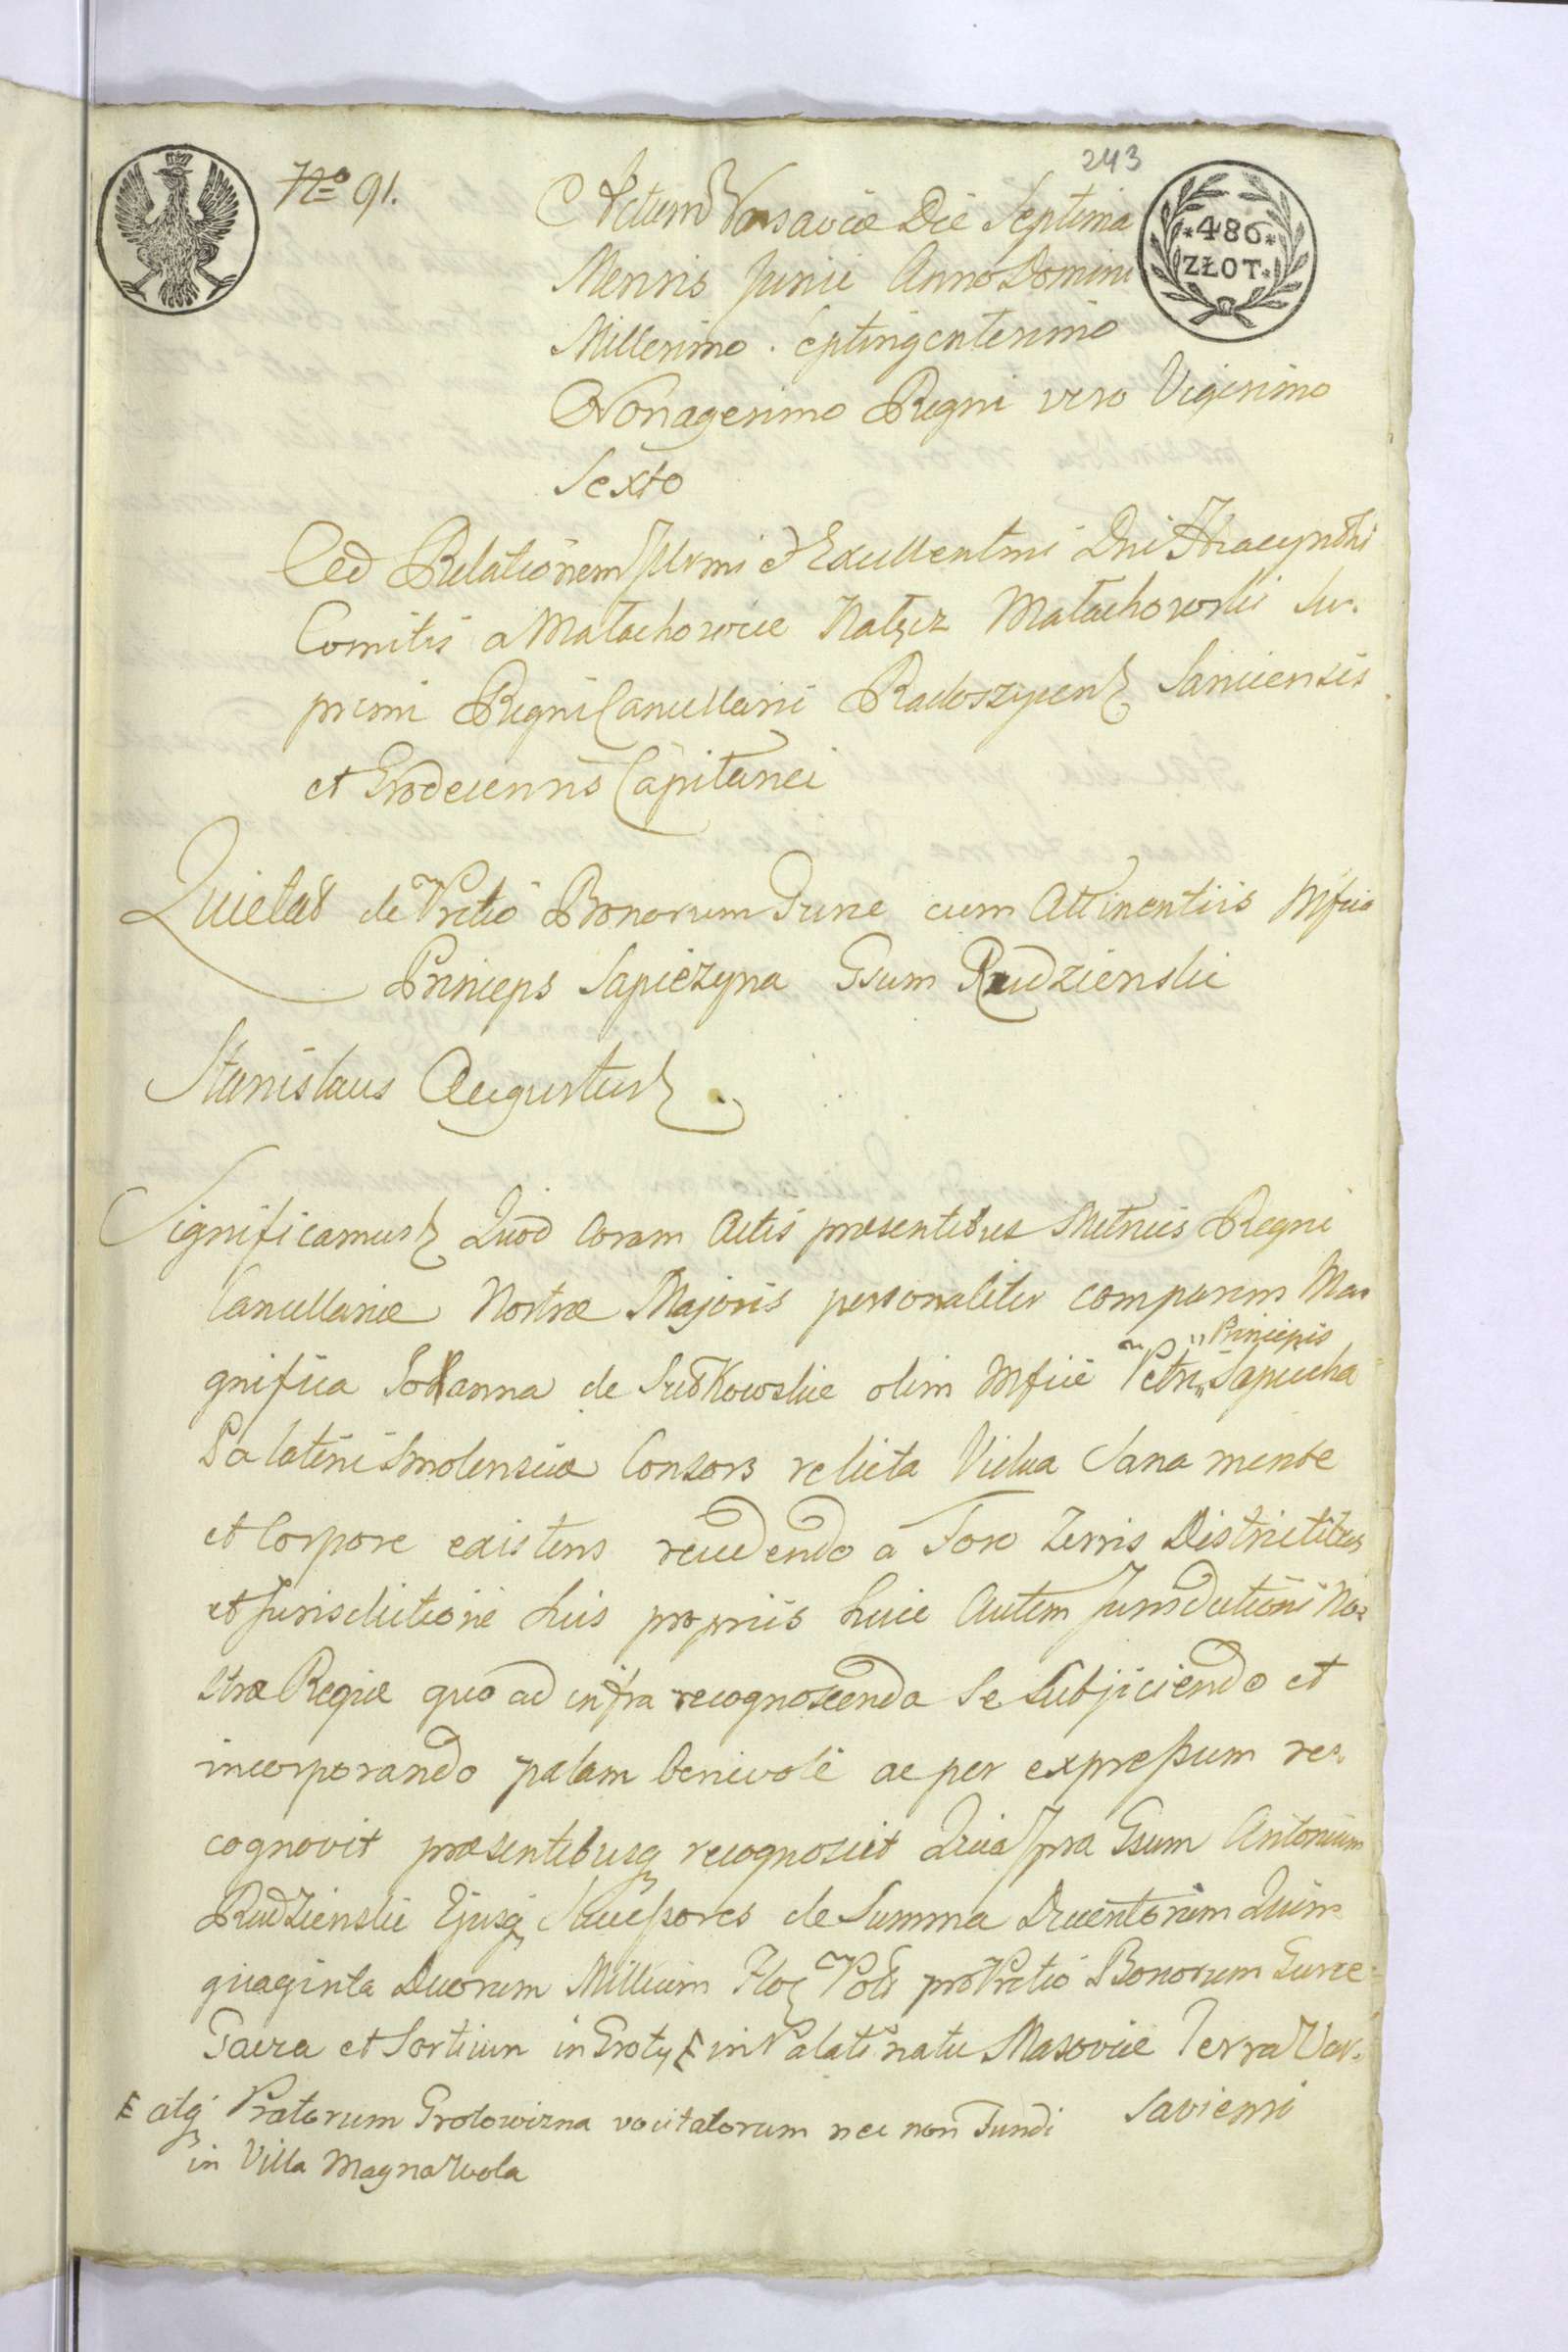 243
No 91.
Actum Varsaviæ Die Septima
Mensis Junii Anno Domini
*486*
ZŁOT.
Millesimo Septingentesimo
Nonagesimo Regni vero Vigesimo
Sexto
Ad Relationem Illrmi et Excellentmi Dni Hyacynthi
Comitis a Małachowice Nałęcz Małachowski Su-
premi Regni Cancellarii Radoszycen Saniensis
et Grodecensis Capitanei
Quietat de Pretio Bonorum Gurce cum Attinentiis Mfica
Princeps Sapiezyna Gsum Rudzienski
Stanislaus Augustus
Significamus Quod Coram Actis præsentibus Metrices Regni
Cancellariæ Nostræ Majoris personaliter comparens Ma-
gnifica Johanna de Sułkowskie olim Mfici Petri Principis Sapiecha
Palatini Smolensciæ Consors relicta Vidua Sana mente
et Corpore existens recedendo a Foro Terris Districtibus
et Jurisdictione suis propriis huic Autem Jurisdictioni No-
stræ Regiæ quo ad infra recognoscenda Se Subjiciendo et
incorporando palam benevole ac per expressum re-
cognovit præsentibusq recognoscit Quia Ipsa Gsum Antonium
Rudzienski Ejusq Successores de Summa Ducentorum Quin
quaginta Duorum Millium Flor Pol pro Pretio Bonorum Gurce
Gacra et Sortium in Groty F in Palatinatu Masoviæ Terra Var-
saviensi
F atq Pratorum Grotowizna vocitatorum nec non Fundi
in Villa Magna Wola